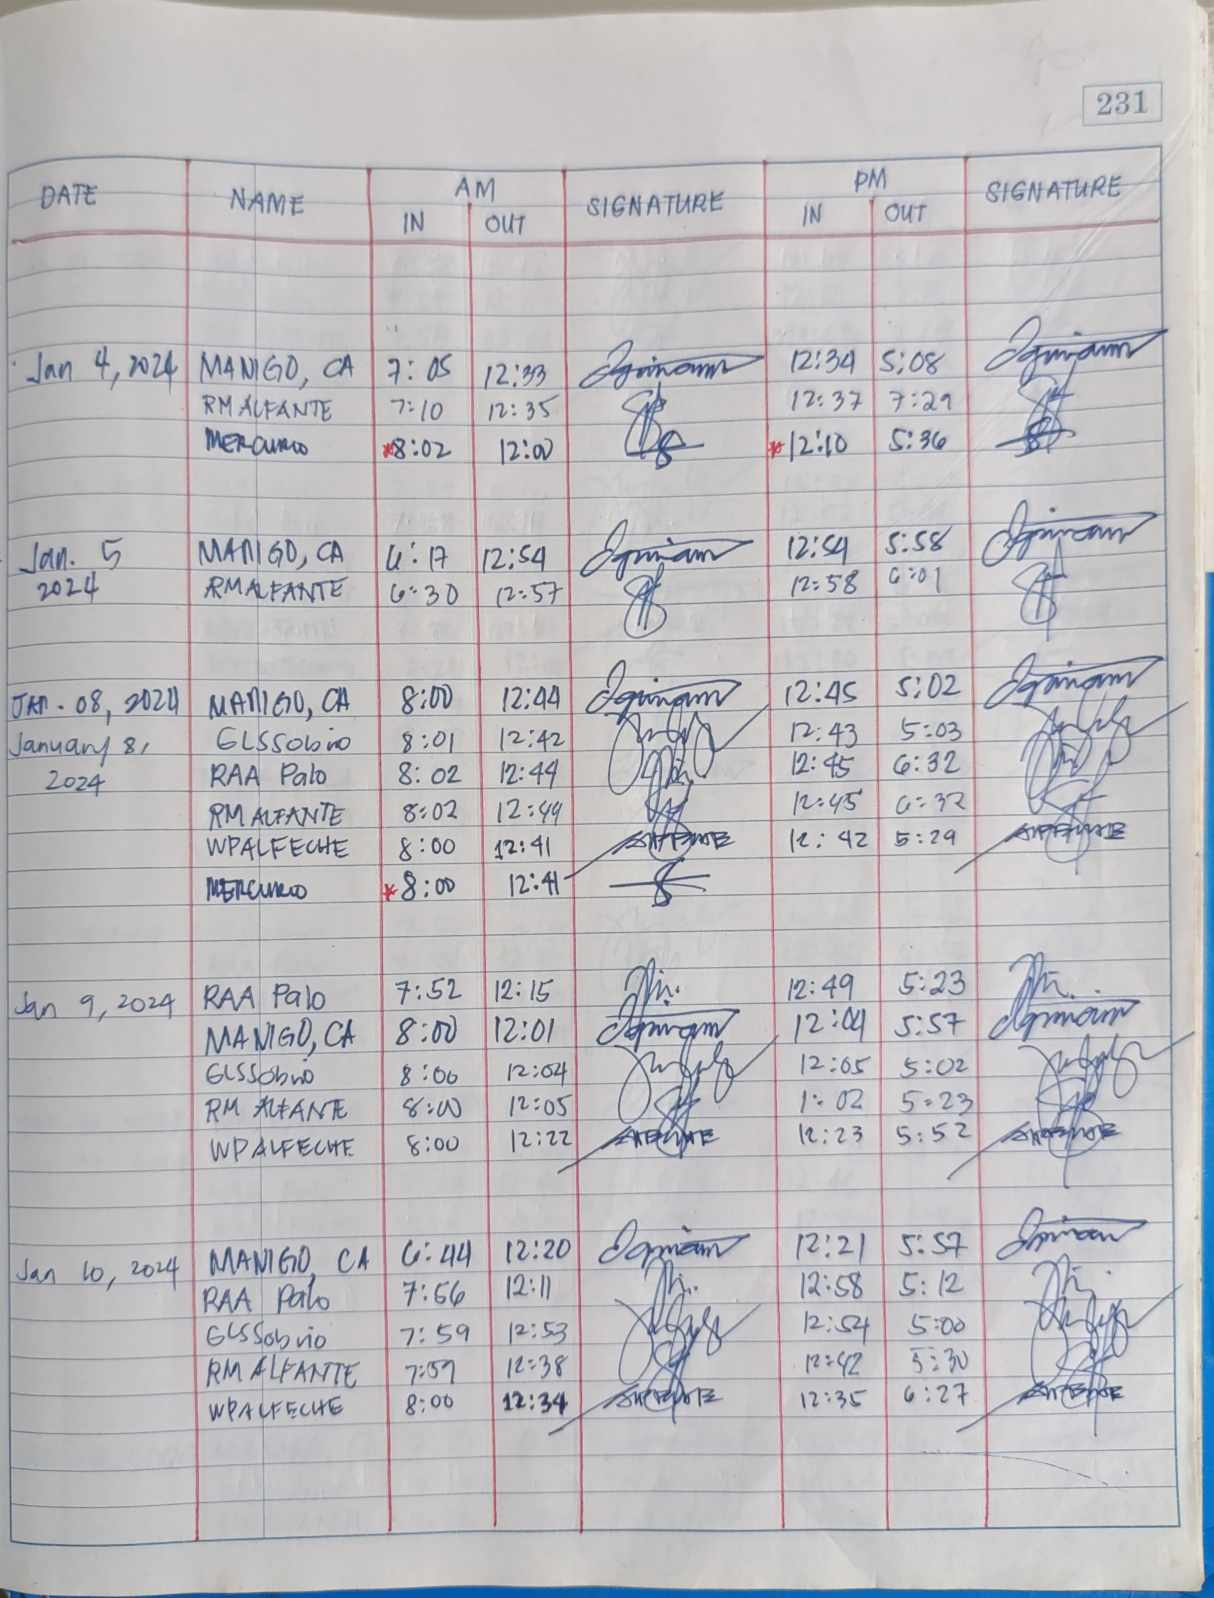 231
DATE NAME AM SIGNATURE PM SIGNATURE
IN OUT IN OUT
Jan 4, 2024 MANIGO, CA 7:05 12:33 12:34 5:08
RMALFANTE 7:10 12:35 12:37 7:29
MERCURIO *8:02 12:00 *12:10 5:36
Jan. 5 MANIGO, CA 6:17 12:54 12:54 5:58
2024 RMALFANTE 6:30 12:57 12:58 6:01
JAN. 08, 2024 MANIGO, CA 8:00 12:44 12:45 5:02
January 8, GLSSobrio 8:01 12:42 12:43 5:03
2024 RAA Palo 8:02 12:44 12:45 6:32
RMALFANTE 8:02 12:44 12:45 6:32
WPALFECHE 8:00 12:41 12:42 5:29
MERCURIO *8:00 12:41
Jan 9, 2024 RAA Palo 7:52 12:15 12:49 5:23
MANIGO, CA 8:00 12:01 12:04 5:57
GLSSobrio 8:00 12:04 12:05 5:02
RM ALFANTE 8:00 12:05 1:02 5:23
WPALFECHE 8:00 12:22 12:23 5:52
Jan 10, 2024 MANIGO, CA 6:44 12:20 12:21 5:57
RAA Palo 7:56 12:11 12:58 5:12
GLSSobrio 7:59 12:53 12:54 5:00
RM ALFANTE 7:57 12:38 12:42 5:30
WPALFECHE 8:00 12:34 12:35 6:27